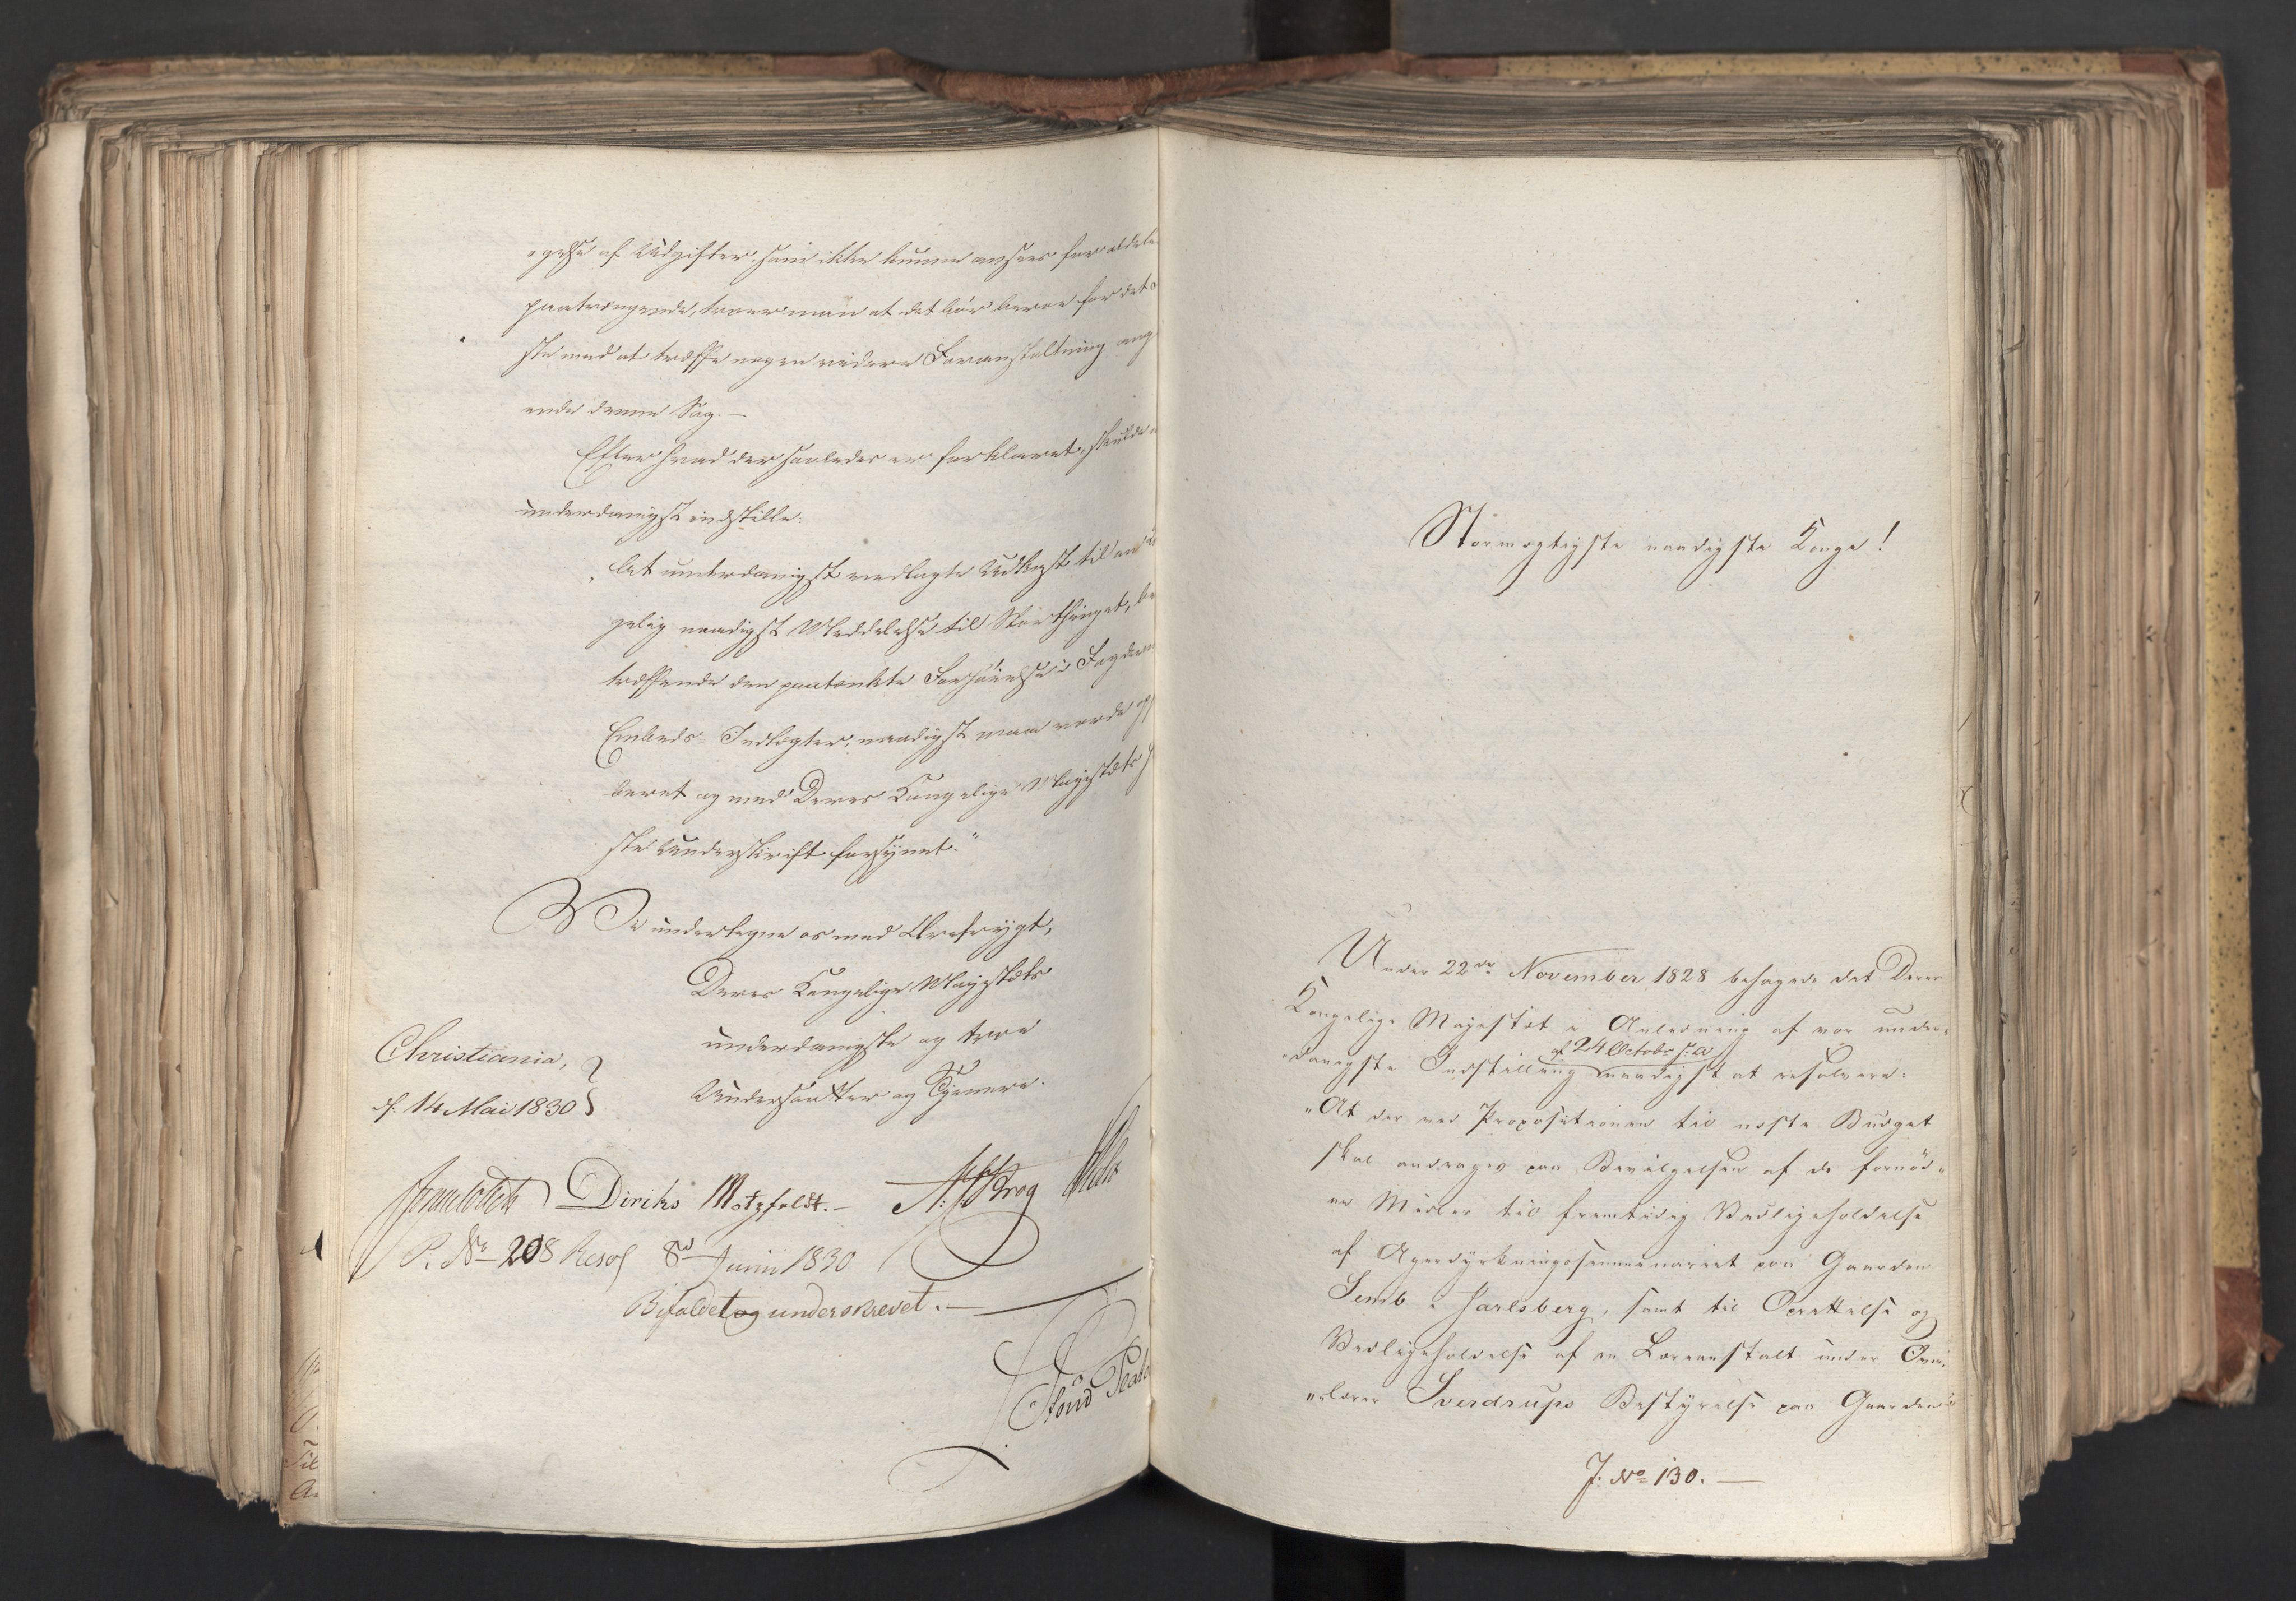 ogelse af Udgifter som ikke kunne ansees for aldele
paatrængende, troer man at det bør beroe for det 
ste med at træffe nogen videre Foranstaltning ang
ende denne Sag.—
Efter hvad der saaledes er forklaret, skulde 
underdanigst indstille:
"At underdanigst vedlagte Udkast til en 
gelig naadigst Meddelelse til Storthinget, be
træffende den paatænkte Forhøielse i Fogdern
Embeds-Indtægter, naadigst maa vorde 
beret og med Deres Kongelige Majestæts 
ste Underskrift forsynet."
Vi undertegne os med Ærefrygt,
Deres Kongelige Majestæts
underdanigste og troe
Undersaatter og Tjenere.
Christiania,
d. 14 Mai 1830
Diriks Motzfeldt.— Krog
P. No 208 Resol 8d Junii 1830
Bifaldet og underskrevet.—
Stormægtigste naadigste Konge!
Under 22de November 1828 behagede det Deres
Kongelige Majestæt i Anledning af vor under-
danigste Indstilling af 24 Octobr s: a: naadigst at resolvere:
"At der ved Propositionen til næste Budget
skal andrages paa Bevilgelsen af de fornød-
ne Midler til fremtidig Vedligeholdelse
af Agerdyrkningsseminariet paa Gaarden
Semb i Jarlsberg, samt til Oprettelse og
Vedligeholdelse af en Læreanstalt under Over-
lærer Sverdrups Bestyrelse paa Gaarden
J: No 130.—